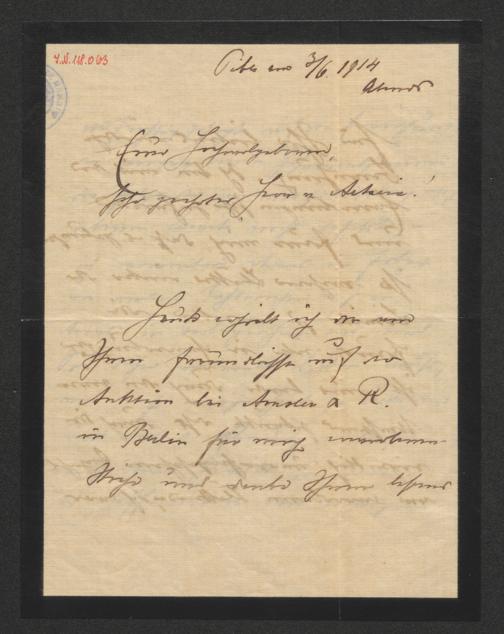 I.N. 118.063
3/6. 1914
Abends
Euer Hochwohlgeboren,
Sehr geehrter Herr v.
Heute erhielt ich die von
Ihnen freundlichst auf der
Auktion bei Amsler & R.
in Berlin für mich erworbenen
und danke Ihnen bestens